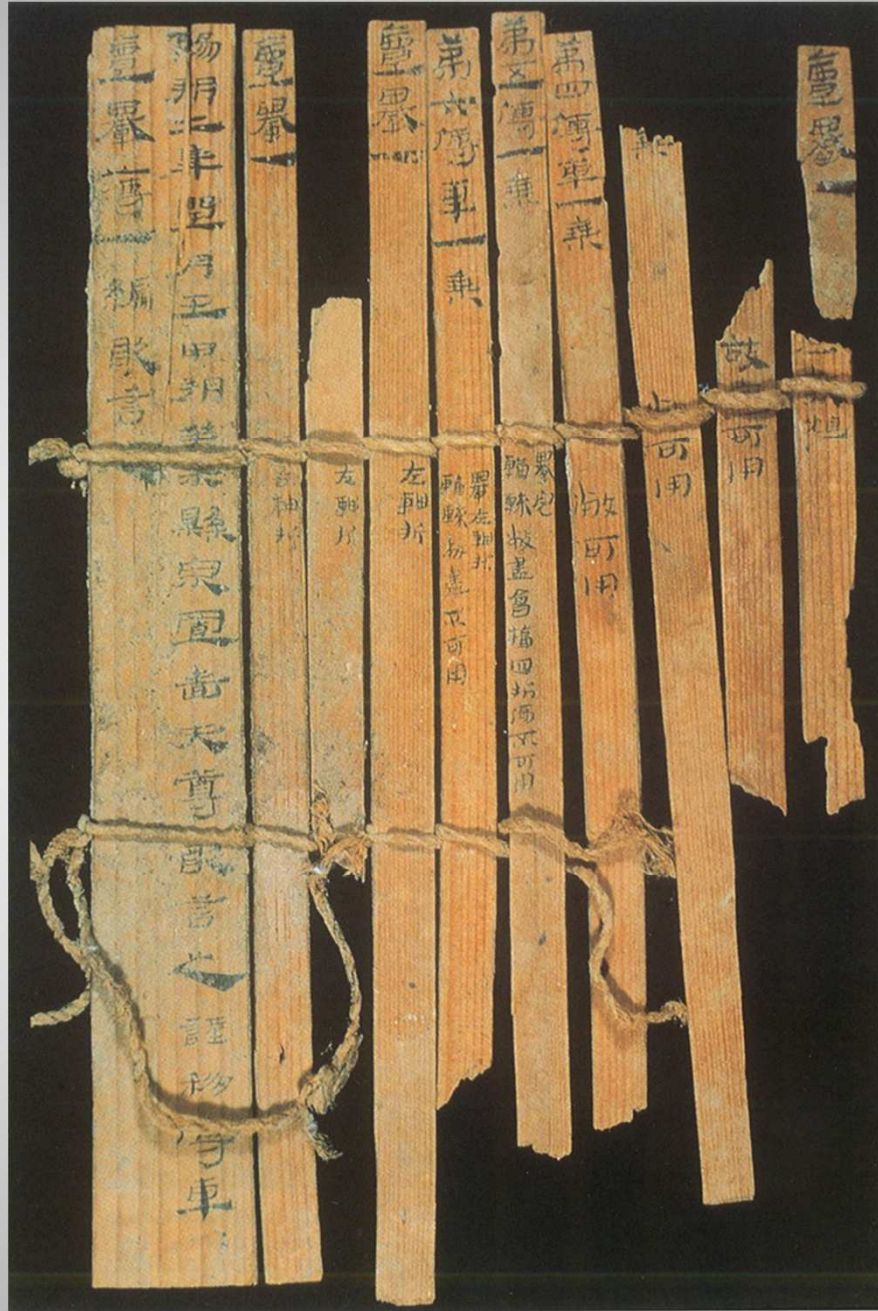 亶轝一
敝可用
乘
敝可用
第四傳車一乘
敝可用
第五傳一乘
轝完
輪轑敝盡會楅四折傷不可用
第六傳車一乘
轝左軸折
輪轑敝盡不可用
亶轝一
左軸折
左軸折
亶轝一
右軸折
陽朔二年閏月壬申朔癸未縣泉置嗇夫尊敢言之謹移傳車
亶轝薄一編敢言之